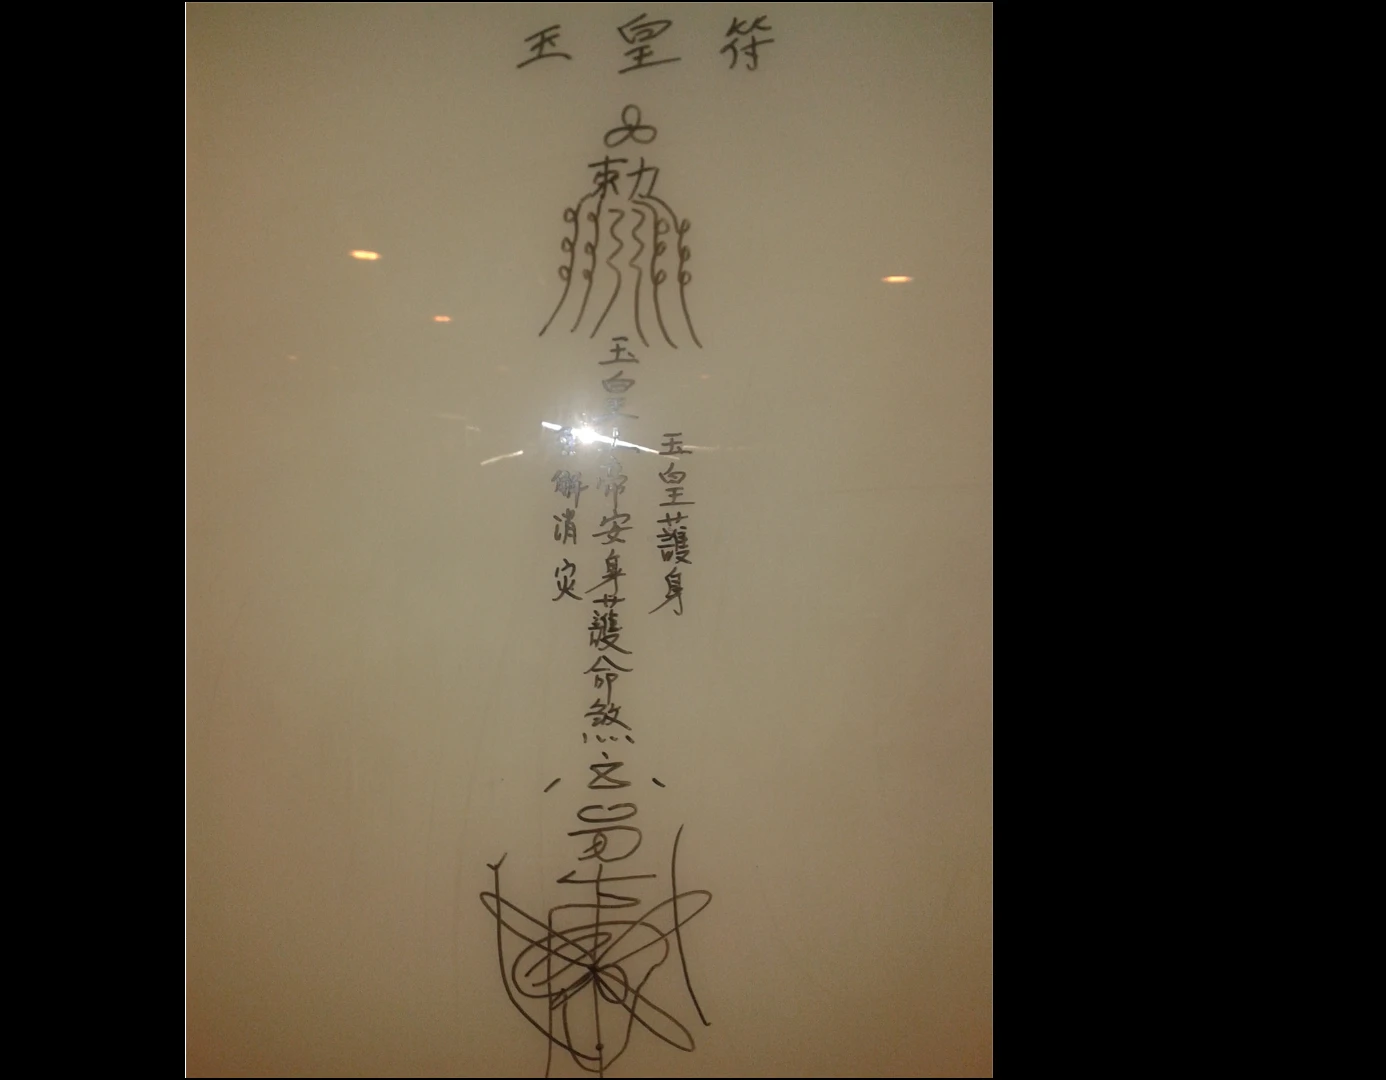 玉皇符
勅
玉皇大帝安身護命煞
玉皇護身
解消灾